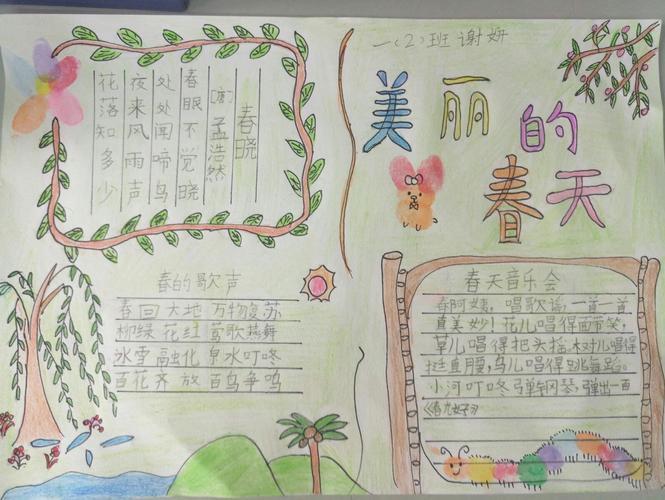 一（2）班 谢妍
美丽的
春天
春晓
[唐] 孟浩然
春眼不觉晓
处处闻啼鸟
夜来风雨声
花落知多少
春的歌声
春回大地 万物复苏
柳绿花红 莺歌燕舞
冰雪融化 泉水叮咚
百花齐放 百鸟争鸣
春天音乐会
春阿姨，唱歌谣，一首一首，
真美妙！花儿唱得面带笑，
草儿唱得把头摇，树儿唱得
挺直腰，鸟儿唱得跳舞蹈。
小河叮咚弹钢琴，弹出一曲
《春光好》